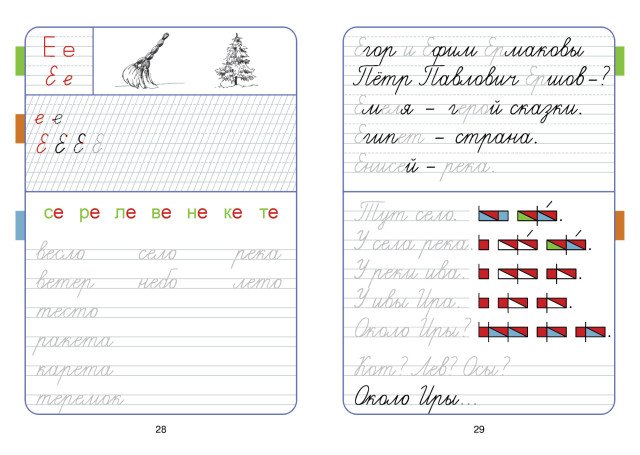 Е е
Е е
е е
Е Е Е Е
се ре ле ве не ке те
весло село река
ветер небо лето
тесто
ракета
карета
теремок
28
Егор и Ефим Ермаковы
Пётр Павлович Ершов –?
Емеля – герой сказки.
Египет – страна.
Енисей – река.
Тут село.
У села река.
У реки ива.
У ивы Ира.
Около Иры?
Кот? Лев? Осы?
Около Иры...
29